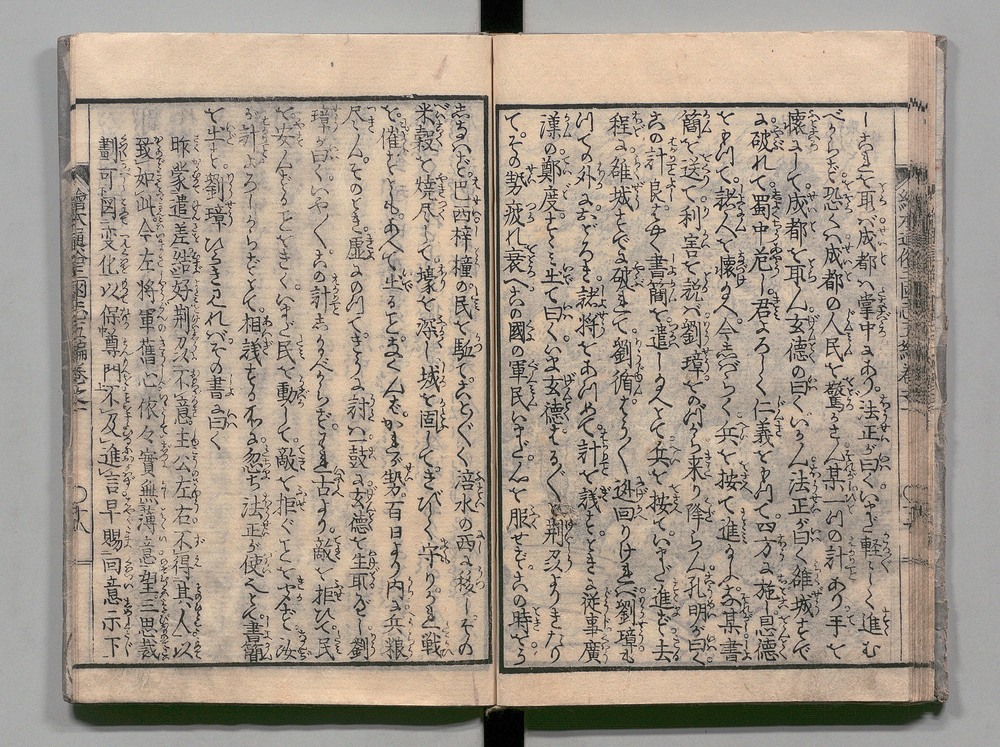 しこれを取バ成都ハ掌中にあり。法正が曰くいまだ軽々しく進む
べからず恐くハ成都の人民を驚さん某一ツの計あり手を
懐にして成都を取ん玄徳の曰くいかん法正が曰く雒城すで
に破れて蜀中危し君よろしく仁義を以て四方に施し恩徳
を以て諸人を懐け今しバらく兵を按て進まず某書
簡を送て利害を説バ劉璋をのづから来り降らん孔明が曰く
この計良しとて書簡を遣し人をして兵を按ていまだ進まず去
程に雒城すでに破れて劉循ことごとく迯回りけれバ劉璋も
つての外におどろき諸将をあつめて計を議するとき従事廣
漢の鄭度すゝミ出て曰くいま玄徳はるばる荊刕よりきたり
て。その勢疲れ衰へこの國の軍民いまだ心を服せずこの時をう
しなはず巴西梓橦の民を駈てことごとく涪水の西に移しその
米穀を焼尽して壕を深し城を固してきびしく守り
を催すともあへて出ることなくんバかれが勢百日より内に兵粮
尽きん。そのとき虚にのつてこれを討バ一鼓に玄徳を生取べし劉
璋が曰くいやいやこの計しかるべからずわれ古より敵を拒ひで民
を安んずることをきくいまだ民を動して敵を拒ぐことをきかず汝
が計よろしからずとて。相議するところに忽ち法正が使へ人書簡
を出しを劉璋ひらき見れバその書に曰く
昨蒙遣差結好荊刕不意主公左右不得其人以
致如此今左将軍舊心依々實無薄意望三思裁
劃可圖変化以保尊門不及進言早賜回意示下